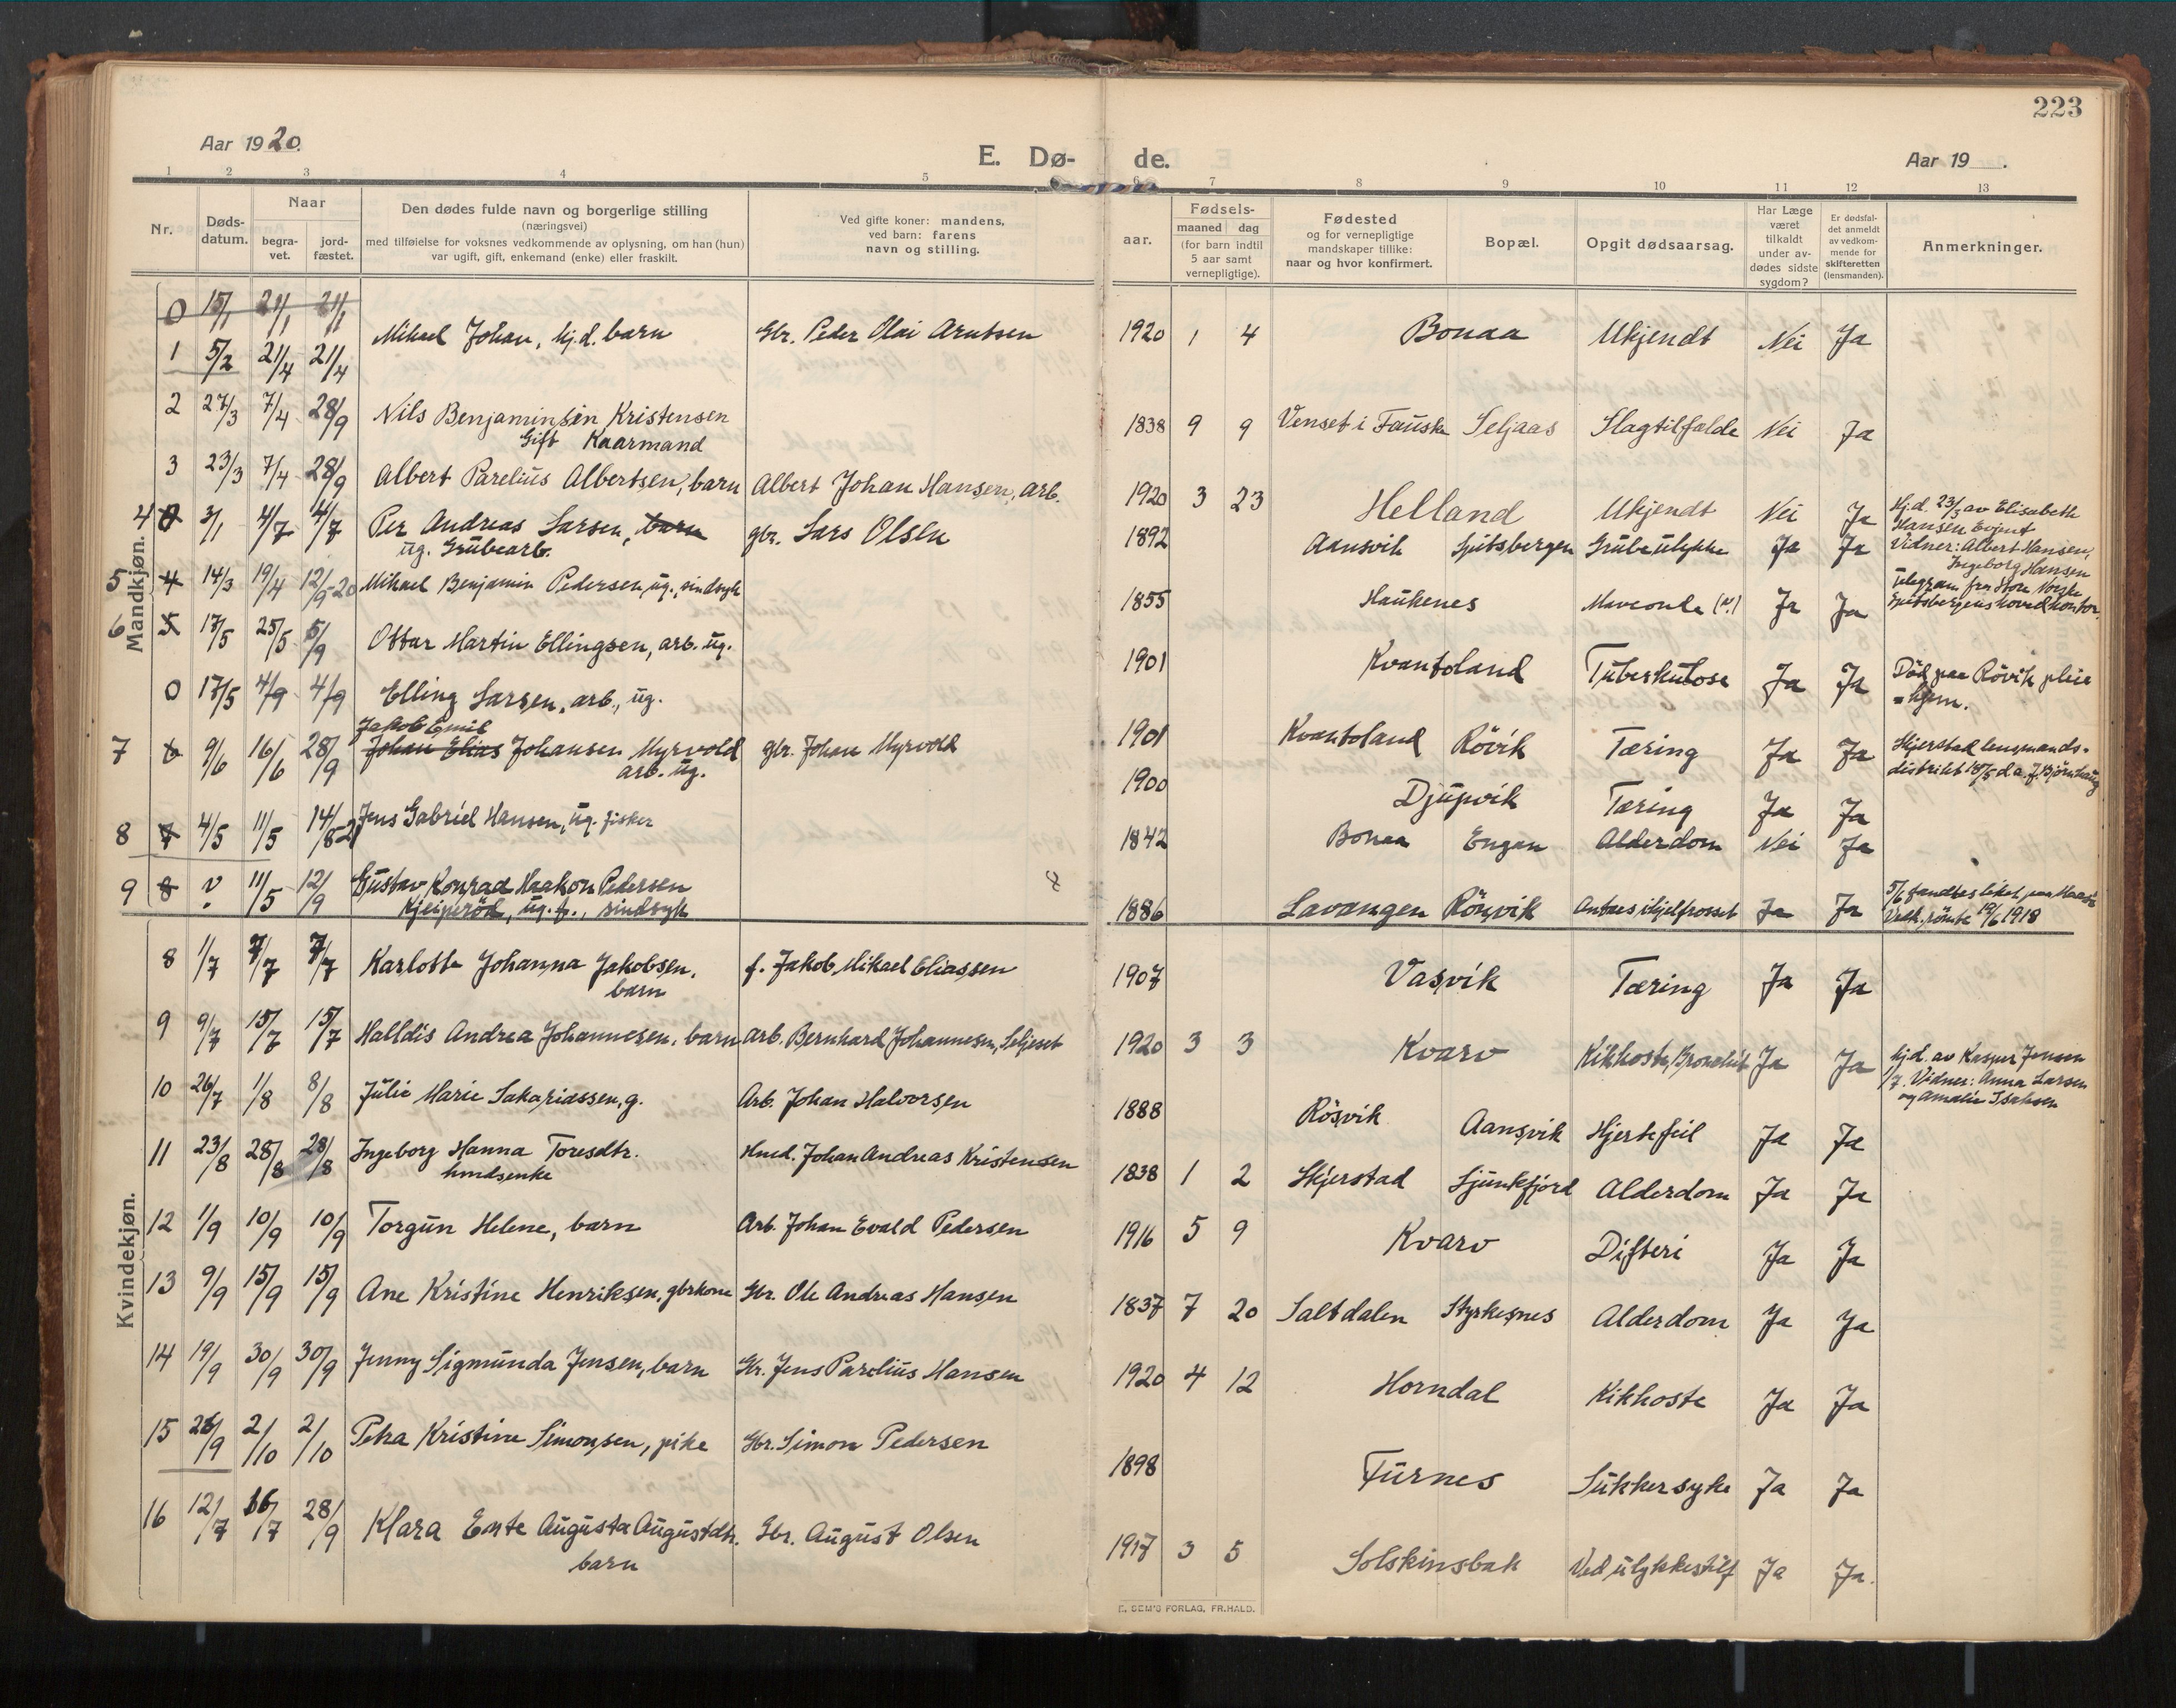 223
Aar 1920.
E. Dø- de.
Aar 19 .
1 2 3 4 5 6 7 8 9 10 11 12 13
Nr.
Døds-
datum.
Naar
begra-
vet.
jord-
fæstet.
Den dødes fulde navn og borgerlige stilling
(næringsvei)
med tilføielse for voksnes vedkommende av oplysning, om han (hun)
var ugift, gift, enkemand (enke) eller fraskilt.
Ved gifte koner: mandens,
ved barn: farens
navn og stilling.
aar.
Fødsels-
maaned dag
(for barn indtil
5 aar samt
vernepligtige).
Fødested
og for vernepligtige
mandskaper tillike:
naar og hvor konfirmert.
Bopæl.
Opgit dødsaarsag.
Har Læge
været
tilkaldt
under av-
dødes sidste
sygdom?
Er dødsfal-
det anmeldt
av vedkom-
mende for
skifteretten
(lensmanden).
Anmerkninger.
Mandkjøn.
0 15/1 21/1 21/1
1 5/2 21/4 21/4 Mikael Johan, hj.d. barn Gbr. Peder Olai Arntsen 1920 1 4 Bonaa Ukjendt Nei Ja
2 27/3 7/4 28/9 Nils Benjaminsen Kristensen 1838 9 9 Venset i Fauske Seljaas Slagtilfælde Nei Ja
Gift Kaarmand
3 23/3 7/4 28/9 Albert Parelius Albertsen, barn Albert Johan Hansen, arb. 1920 3 23 Helland Ukjendt Nei Ja Hj.d. 23/3 av Elisabeth
Hansen Evjent
Vidner: Albert Hansen,
Ingeborg Hansen
4 3/1 4/7 4/7 Per Andreas Larsen, barn gbr. Lars Olsen 1892 Aansvik Spitsbergen Grubeulykke Ja Ja
ug. Grubearb.
Telegram fra Store Norske
Spitsbergens hovedkontor.
5 4 14/3 19/4 12/9-20 Mikael Benjamin Pedersen, ug., sindsyk 1855 Haukenes Ja Ja
6 5 17/5 25/5 5/9 Ottar Martin Ellingsen, arb. ug. 1901 Kvantoland Tuberkulose Ja Ja Död paa Rövik pleie
=hjem.
0 17/5 4/9 4/9 Elling Larsen, arb., ug. 1901 Kvantoland Rövik Tæring Ja Ja Skjerstad lensmands-
distrikt 18/5 d.a. J. Bjørnhaug
Jakob Emil
7 6 9/6 16/6 28/9 Johan Elias Johansen Myrvold gbr. Johan Myrvold 1900 Djupvik Tæring Ja Ja
arb. ug.
8 7 4/5 11/5 14/8-21 Jens Gabriel Hansen, ug. fisker 1842 Bonaa Engan Alderdom Nei Ja
9 8 ? 11/5 12/9 Gustav Konrad Haakon Pedersen 1886 Lavangen Rönvik Antaes ihjelfrosset Ja Ja 5/6 fandtes liket paa
römte 19/6 1918
Kjeiperöd, ug. f., sindsyk
Kvindekjøn.
8 1/7 7/7 7/7 Karlotte Johanna Jakobsen, f. Jakob Mikael Eliassen 1907 Vasvik Tæring Ja Ja
barn
9 9/7 15/7 15/7 Halldis Andrea Johannesen, barn Arb. Bernhard Johannesen, Seljeset 1920 3 3 Kvarv Kikhoste, Bronchit Ja Ja hj.d. av Kasper Jensen
1/7. Vidner: Anna Larsen
og Amalie Isaksen
10 26/7 1/8 8/8 Julie Marie Sakariassen, g. Arb. Johan Halvorsen 1888 Rösvik Aansvik Hjertefeil Ja Ja
11 23/8 28/8 28/8 Ingeborg Hanna Toresdtr. Hmd. Johan Andreas Kristensen 1838 1 2 Skjerstad Sjunkfjord Alderdom Ja Ja
hmdsenke
12 1/9 10/9 10/9 Torgun Helene, barn Arb. Johan Evald Pedersen 1916 5 9 Kvarv Difteri Ja Ja
13 9/9 15/9 15/9 Ane Kristine Henriksen, gbrkone Gbr. Ole Andreas Hansen 1837 7 20 Saltdalen Styrkesnes Alderdom Ja Ja
14 19/9 30/9 30/9 Jenny Sigmunda Jensen, barn Gbr. Jens Parelius Hansen 1920 4 12 Horndal Kikhoste Ja Ja
15 26/9 2/10 2/10 Petra Kristine Simonsen, pike Gbr. Simon Pedersen 1898 Furnes Sukkersyke Ja Ja
16 12/7 16/7 28/9 Klara Augusta Augustdtr. Gbr. August Olsen 1917 3 5 Solskinsbak Ved ulykkestilf Ja Ja.
barn
E. SEM'S FORLAG, FR.HALD.